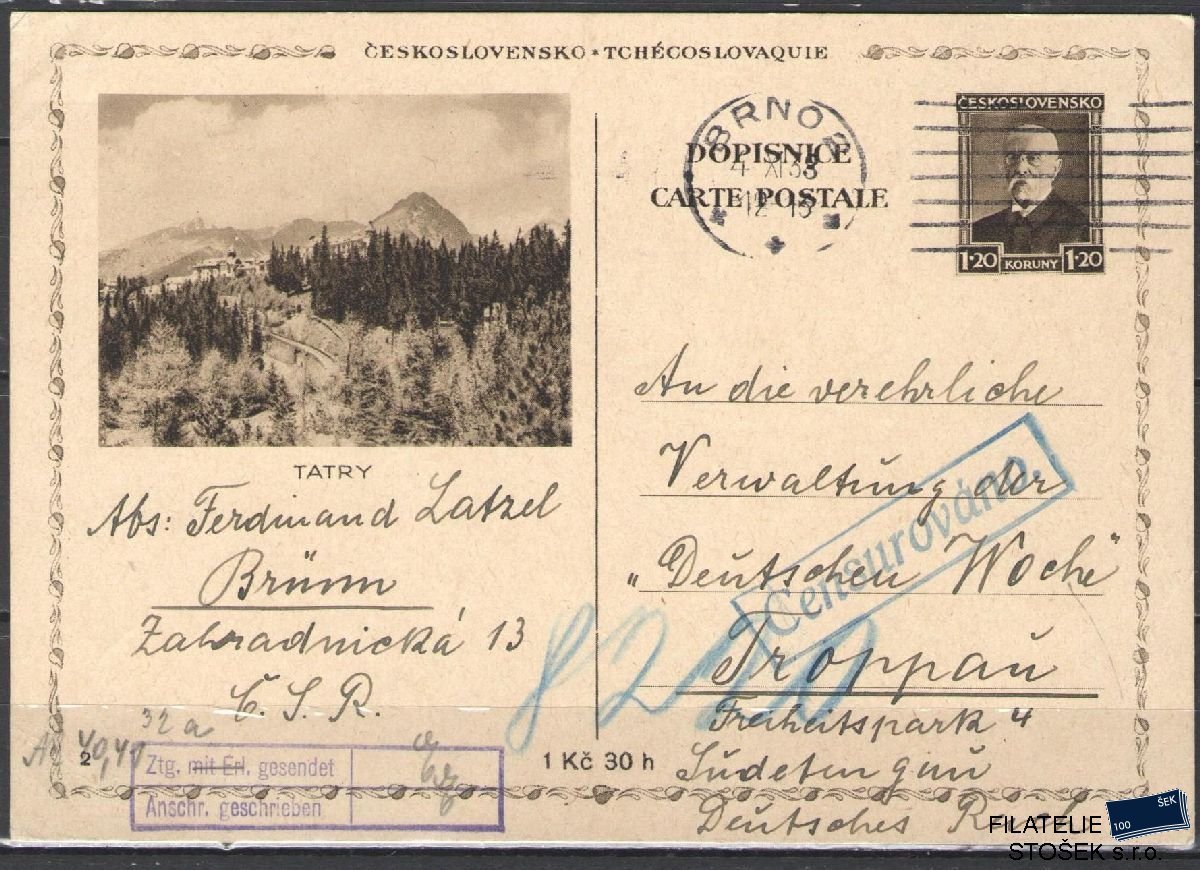 ČESKOSLOVENSKO * TCHÉCOSLOVAQUIE
BRNO 2
4 XI 38
12-15
DOPISNICE
CARTE POSTALE
ČESKOSLOVENSKO
1·20 KORUNY 1·20
TATRY
Abs: Ferdinand Latzel
Brünn
Zahradnická 13
Č. S. R.
An die verehrliche
Verwaltung der
"Deutschen Woche"
Troppau
Freiheitspark 4
Sudetengau
Deutsches Reich
Censurováno.
32 a
40,41
2
Ztg. mit Erl. gesendet
Anschr. geschrieben
1 Kč 30 h
FILATELIE
STOŠEK s.r.o.
100
ŠEK